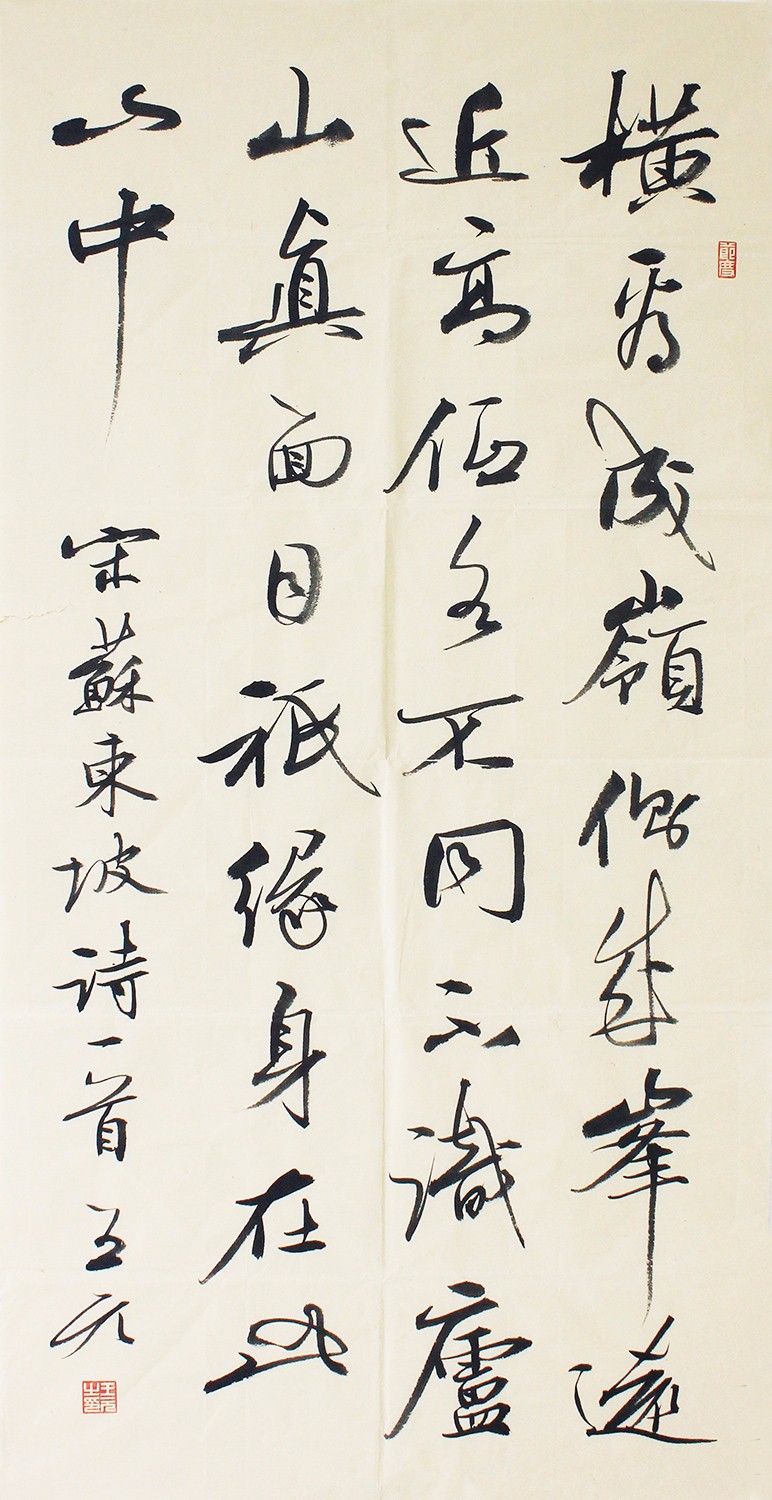 橫看成嶺側成峯遠
近高低各不同不識廬
山真面目祇緣身在此
山中
宋蘇東坡詩一首 王元
王元之印